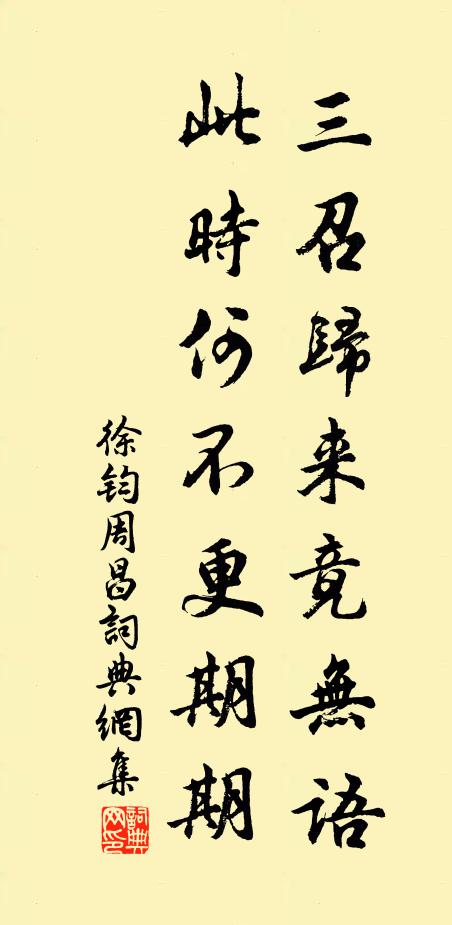 三召歸来竟無語
此時何不更期期
徐鈞周昌詞典網集
詞典网印